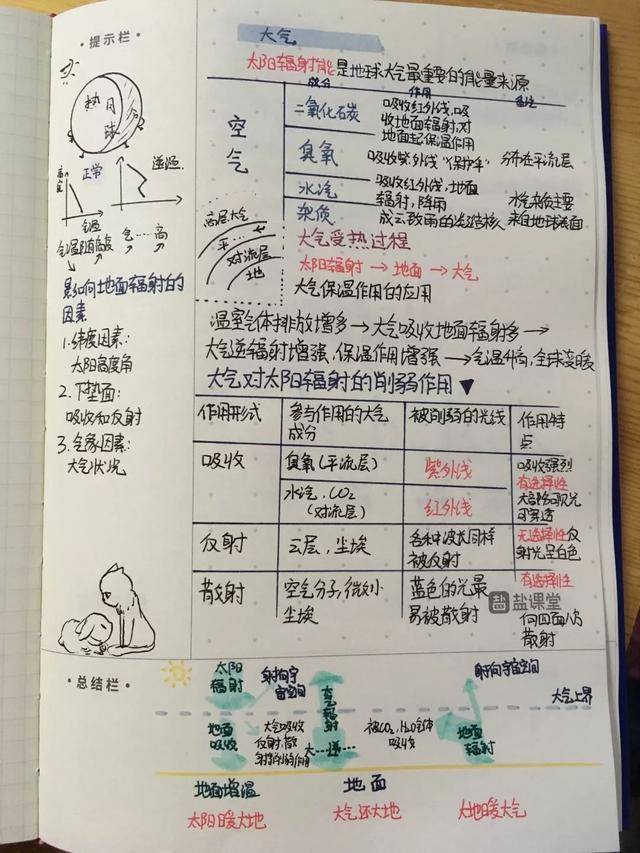 · 提示栏 ·
热
月
球
正常
逆温
高
度
气温
气……高
影响地面辐射的
因素
1.纬度因素:
太阳高度角
2.下垫面:
吸收和反射
3.气象因素:
大气状况
大气
太阳辐射能是地球大气最重要的能量来源
成分 作用 备注
空气
二氧化石炭
吸收红外线,吸
收地面辐射,对
地面起保温作用
臭氧
吸收紫外线"保护伞" 分布在平流层
水汽
吸收红外线,地面
辐射,降雨
杂质
成云致雨的凝结核
水汽杂质主要
来自地球表面
高层大气
平……
对流层
地
大气受热过程
太阳辐射 → 地面 → 大气
大气保温作用的应用
温室气体排放增多→大气吸收地面辐射多→
大气逆辐射增强,保温作用增强→气温升高,全球变暖
大气对太阳辐射的削弱作用▼
作用形式
参与作用的大气
成分
被削弱的光线
作用特
点
吸收
臭氧(平流层)
紫外线
水汽、CO₂
(对流层)
红外线
吸收强烈
有选择性
大部分可见光
可穿透
反射
云层,尘埃
各种波长同样
被反射
无选择性反
射光呈白色
散射
空气分子,微小
尘埃
蓝色的光最
易被散射
有选择性
向四面八方
散射
盐 盐课堂
· 总结栏 ·
太阳
辐射
射向宇
宙空间
大气辐射
射向宇宙空间
大气上界
地面
吸收
大气吸收
反射,散
射等削弱作用
大……逆
被CO₂,H₂O气体
吸收
地面
辐射
地面增温
地面
太阳暖大地
大气还大地
大地暖大气